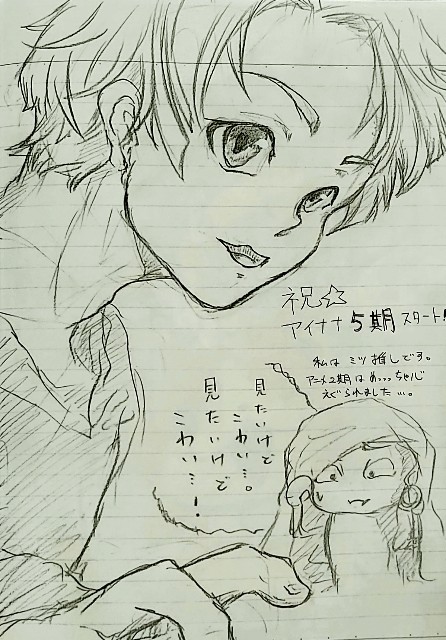 祝☆
アイナナ5期スタート!
私はミツ推しです。
アニメ2期はめっっっちゃ心
えぐられました…。
見たいけど
こわい…。
見たいけど
こわい…!